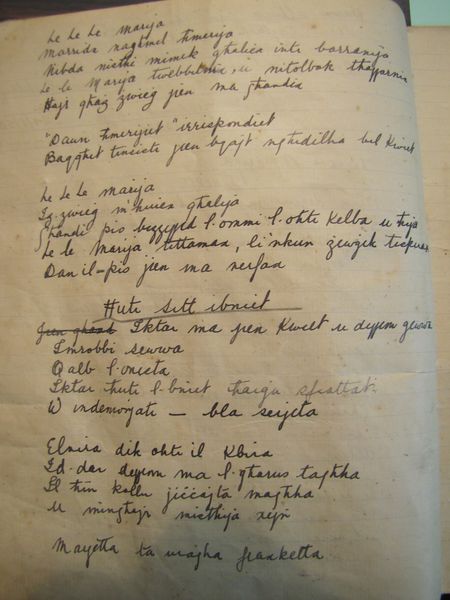 Le Le Le Marija
Morride nagħmel ħmerija
Nibda nisthi minnek għaliex inti barranija
Le le Marija twebbilnix, u nitolbok tħaffarnix
Hajr għaz zwieg jien ma għandix
"Daun ħmerijiet" irrispondiet
Baqgħet tinsisti jien bqajt ngħidilha bil kwiet
Le Le Le Marija
Iz-zwieg m'huiex għalija
Għandi piż bizzejjed l'ommi l'oħti Kelba u ħija
Le le Marija tittamax, li nkun zewgek tispera
Dan il-piż jien ma nerfax
Huti sitt ibniet
Iktar ma jien Kwiet u dejjem
Imrobbi sewwa
Qalb l'onesta
Iktar ħuti l-bniet ħargu sfrattati
W indemonjati — bla serjeta
Elvira dik oħti il Kbira
Id-dar dejjem ma l-għarus tagħha
Il ħin kollu jiċċajta magħha
u mingħajr mistħija xejn
Maryetta ta wiċċha franketta